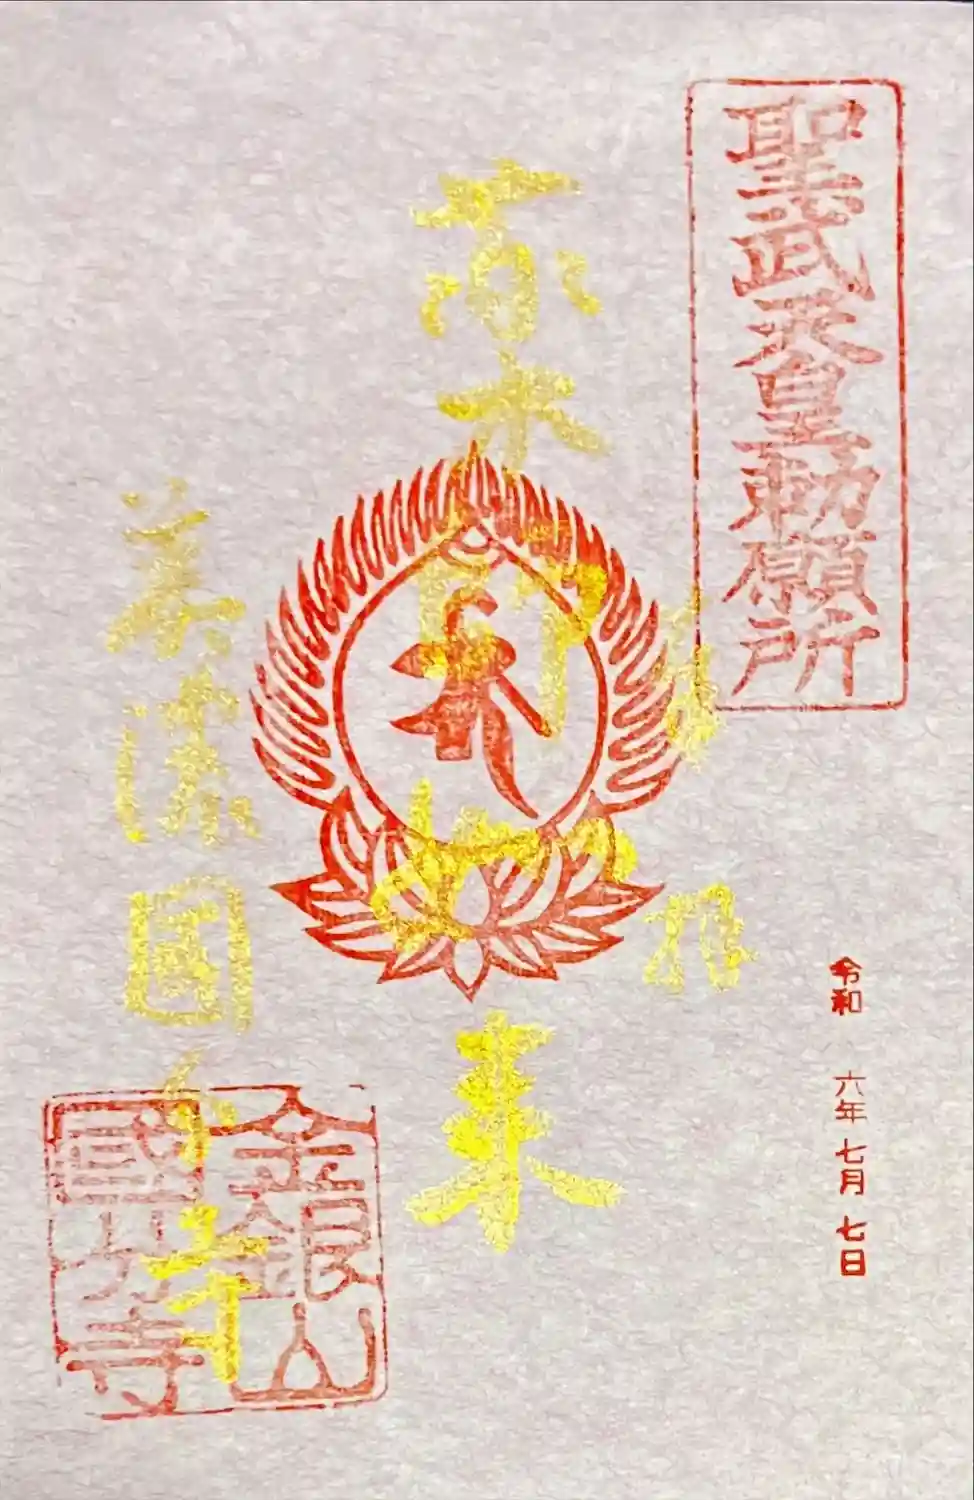 聖武天皇勅願所
奉拝
令和 六年七月七日
薬師如来
美濃國分寺
金銀山
國分寺